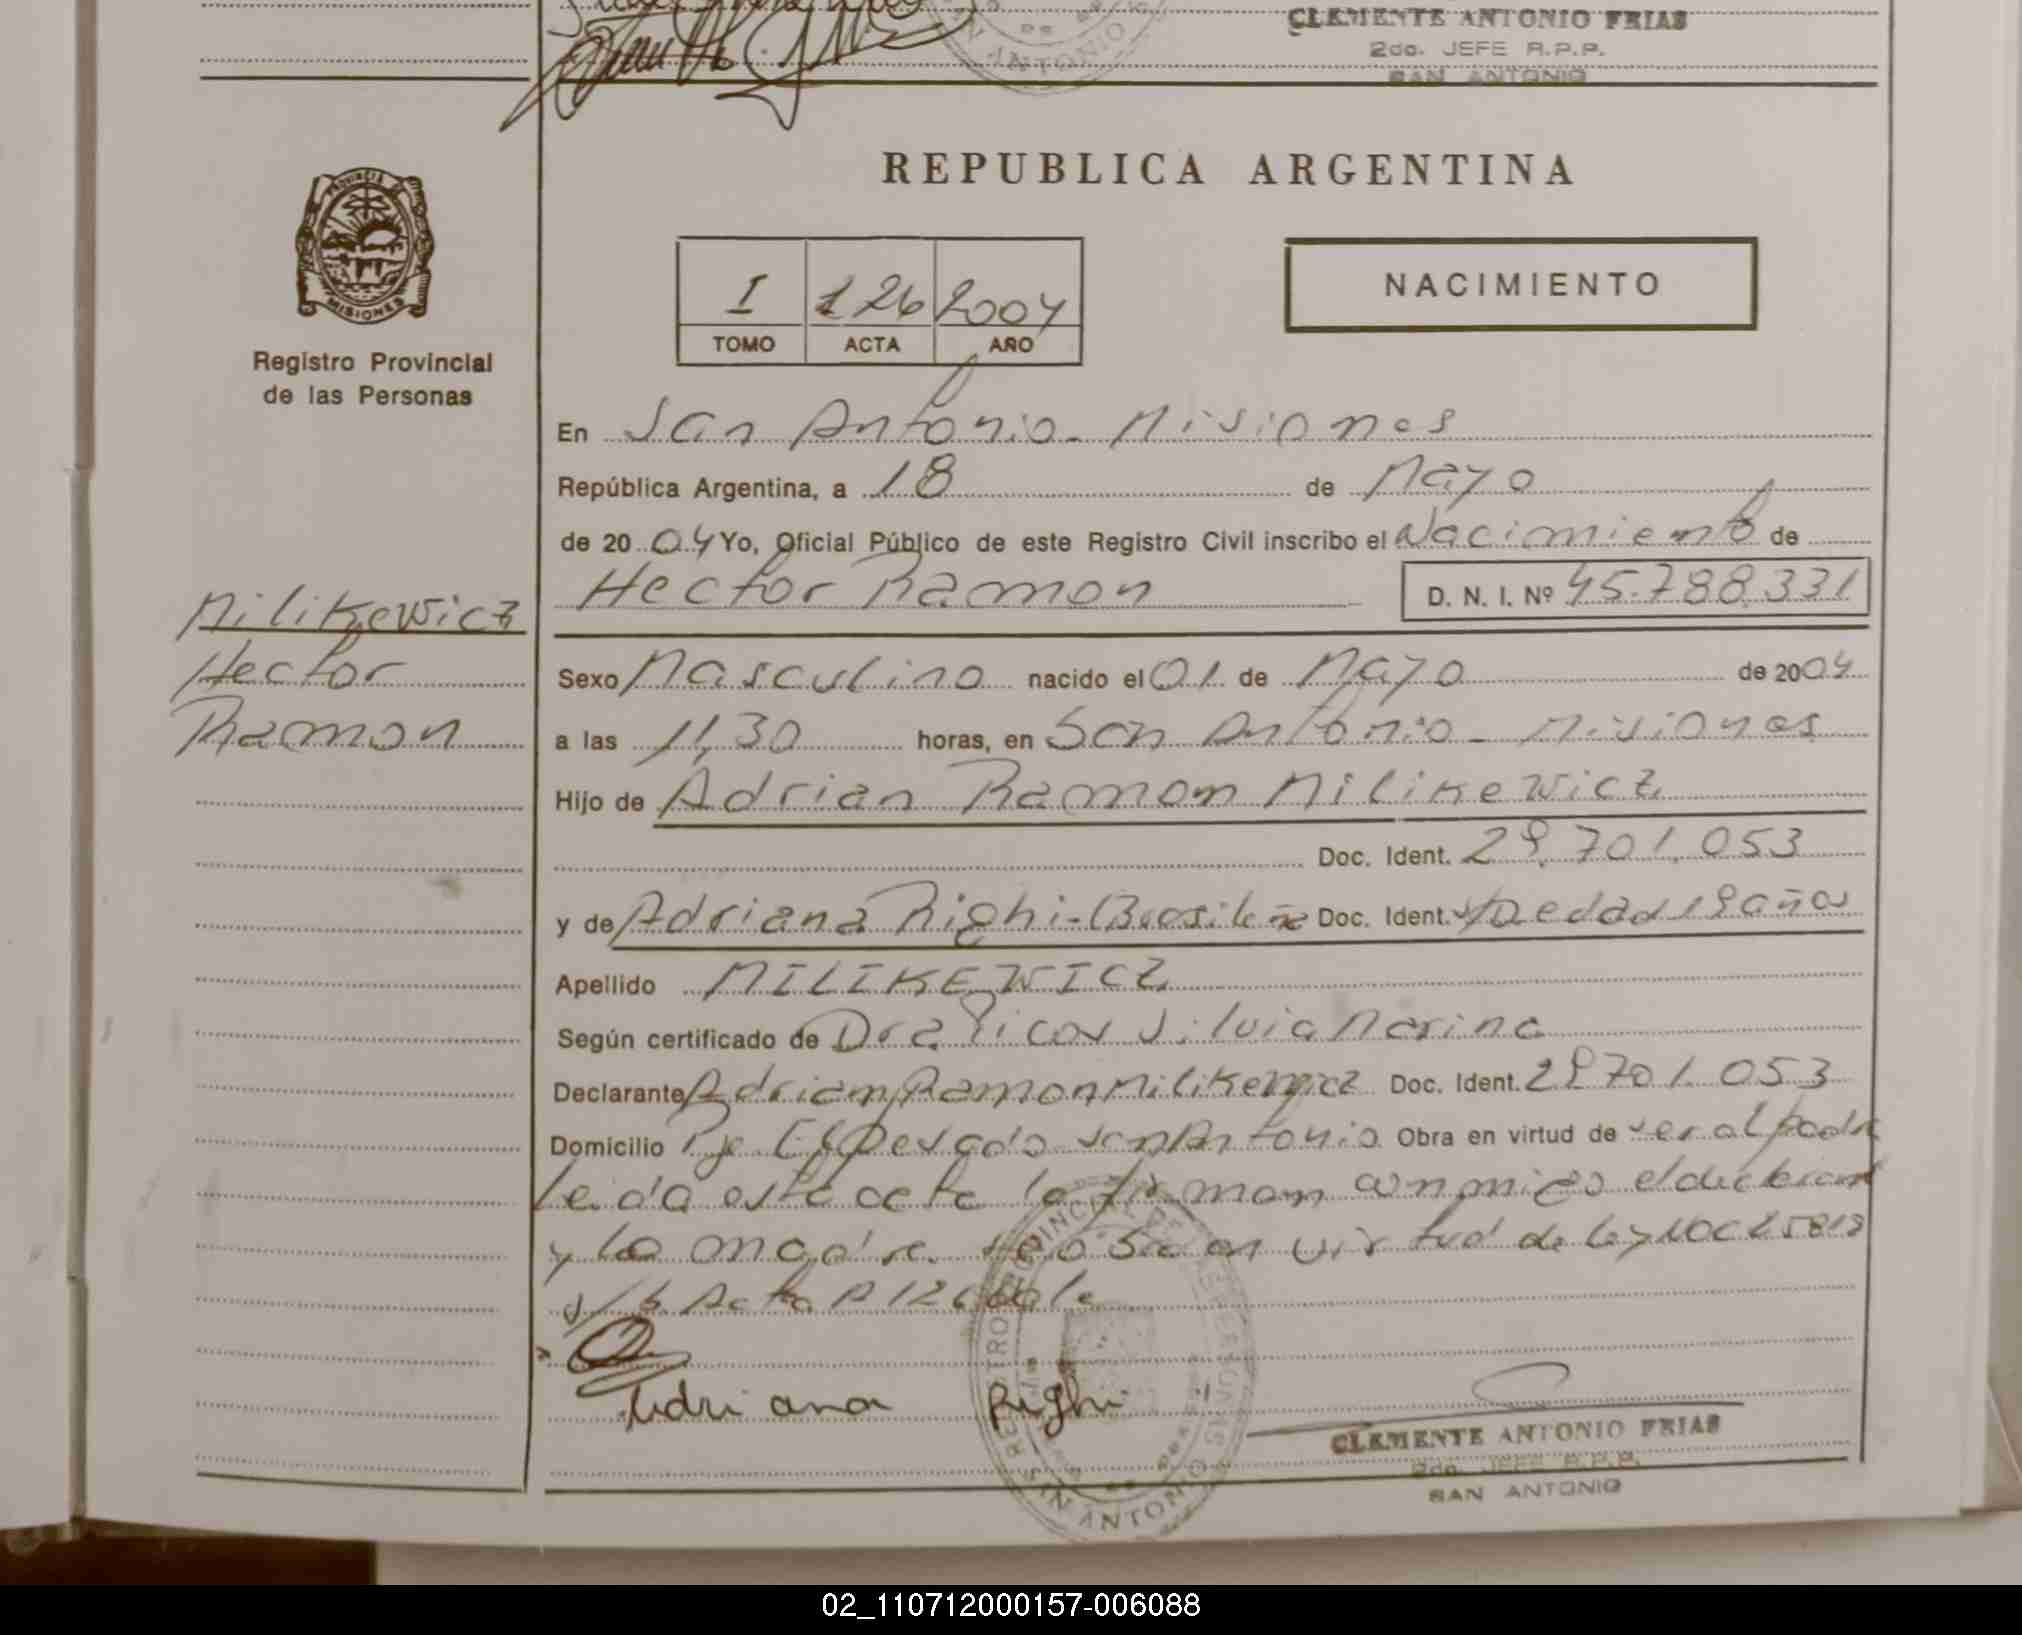 CLEMENTE ANTONIO FRIAS
2do. JEFE R.P.P.
SAN ANTONIO
ANTONIO
PROVINCIA DE
MISIONES
Registro Provincial
de las Personas
REPUBLICA ARGENTINA
I 126 2004
TOMO ACTA AÑO
NACIMIENTO
En San Antonio - Misiones
República Argentina, a 18 de Mayo
de 20 04 Yo, Oficial Público de este Registro Civil inscribo el Nacimiento de
Hector Ramon D. N. I. Nº 45.788.331
Milikewicz
Hector
Ramon
Sexo Masculino nacido el 01 de Mayo de 2004
a las 11,30 horas, en San Antonio - Misiones
Hijo de Adrian Ramon Milikewicz
Doc. Ident. 29.701.053
y de Adriana Righi - Brasileña Doc. Ident. edad 19 años
Apellido MILIKEWICZ
Según certificado de Dra. Silvia Marina
Declarante Adrian Ramon Milikewicz Doc. Ident. 29.701.053
Domicilio Pje San Antonio Obra en virtud de ser el padre
Leida esta acta la firman conmigo el
y la madre en virtud de Ley
Acta
Adriana Righi
SAN ANTONIO
CLEMENTE ANTONIO FRIAS
2do. JEFE R.P.P.
SAN ANTONIO
02_110712000157-006088